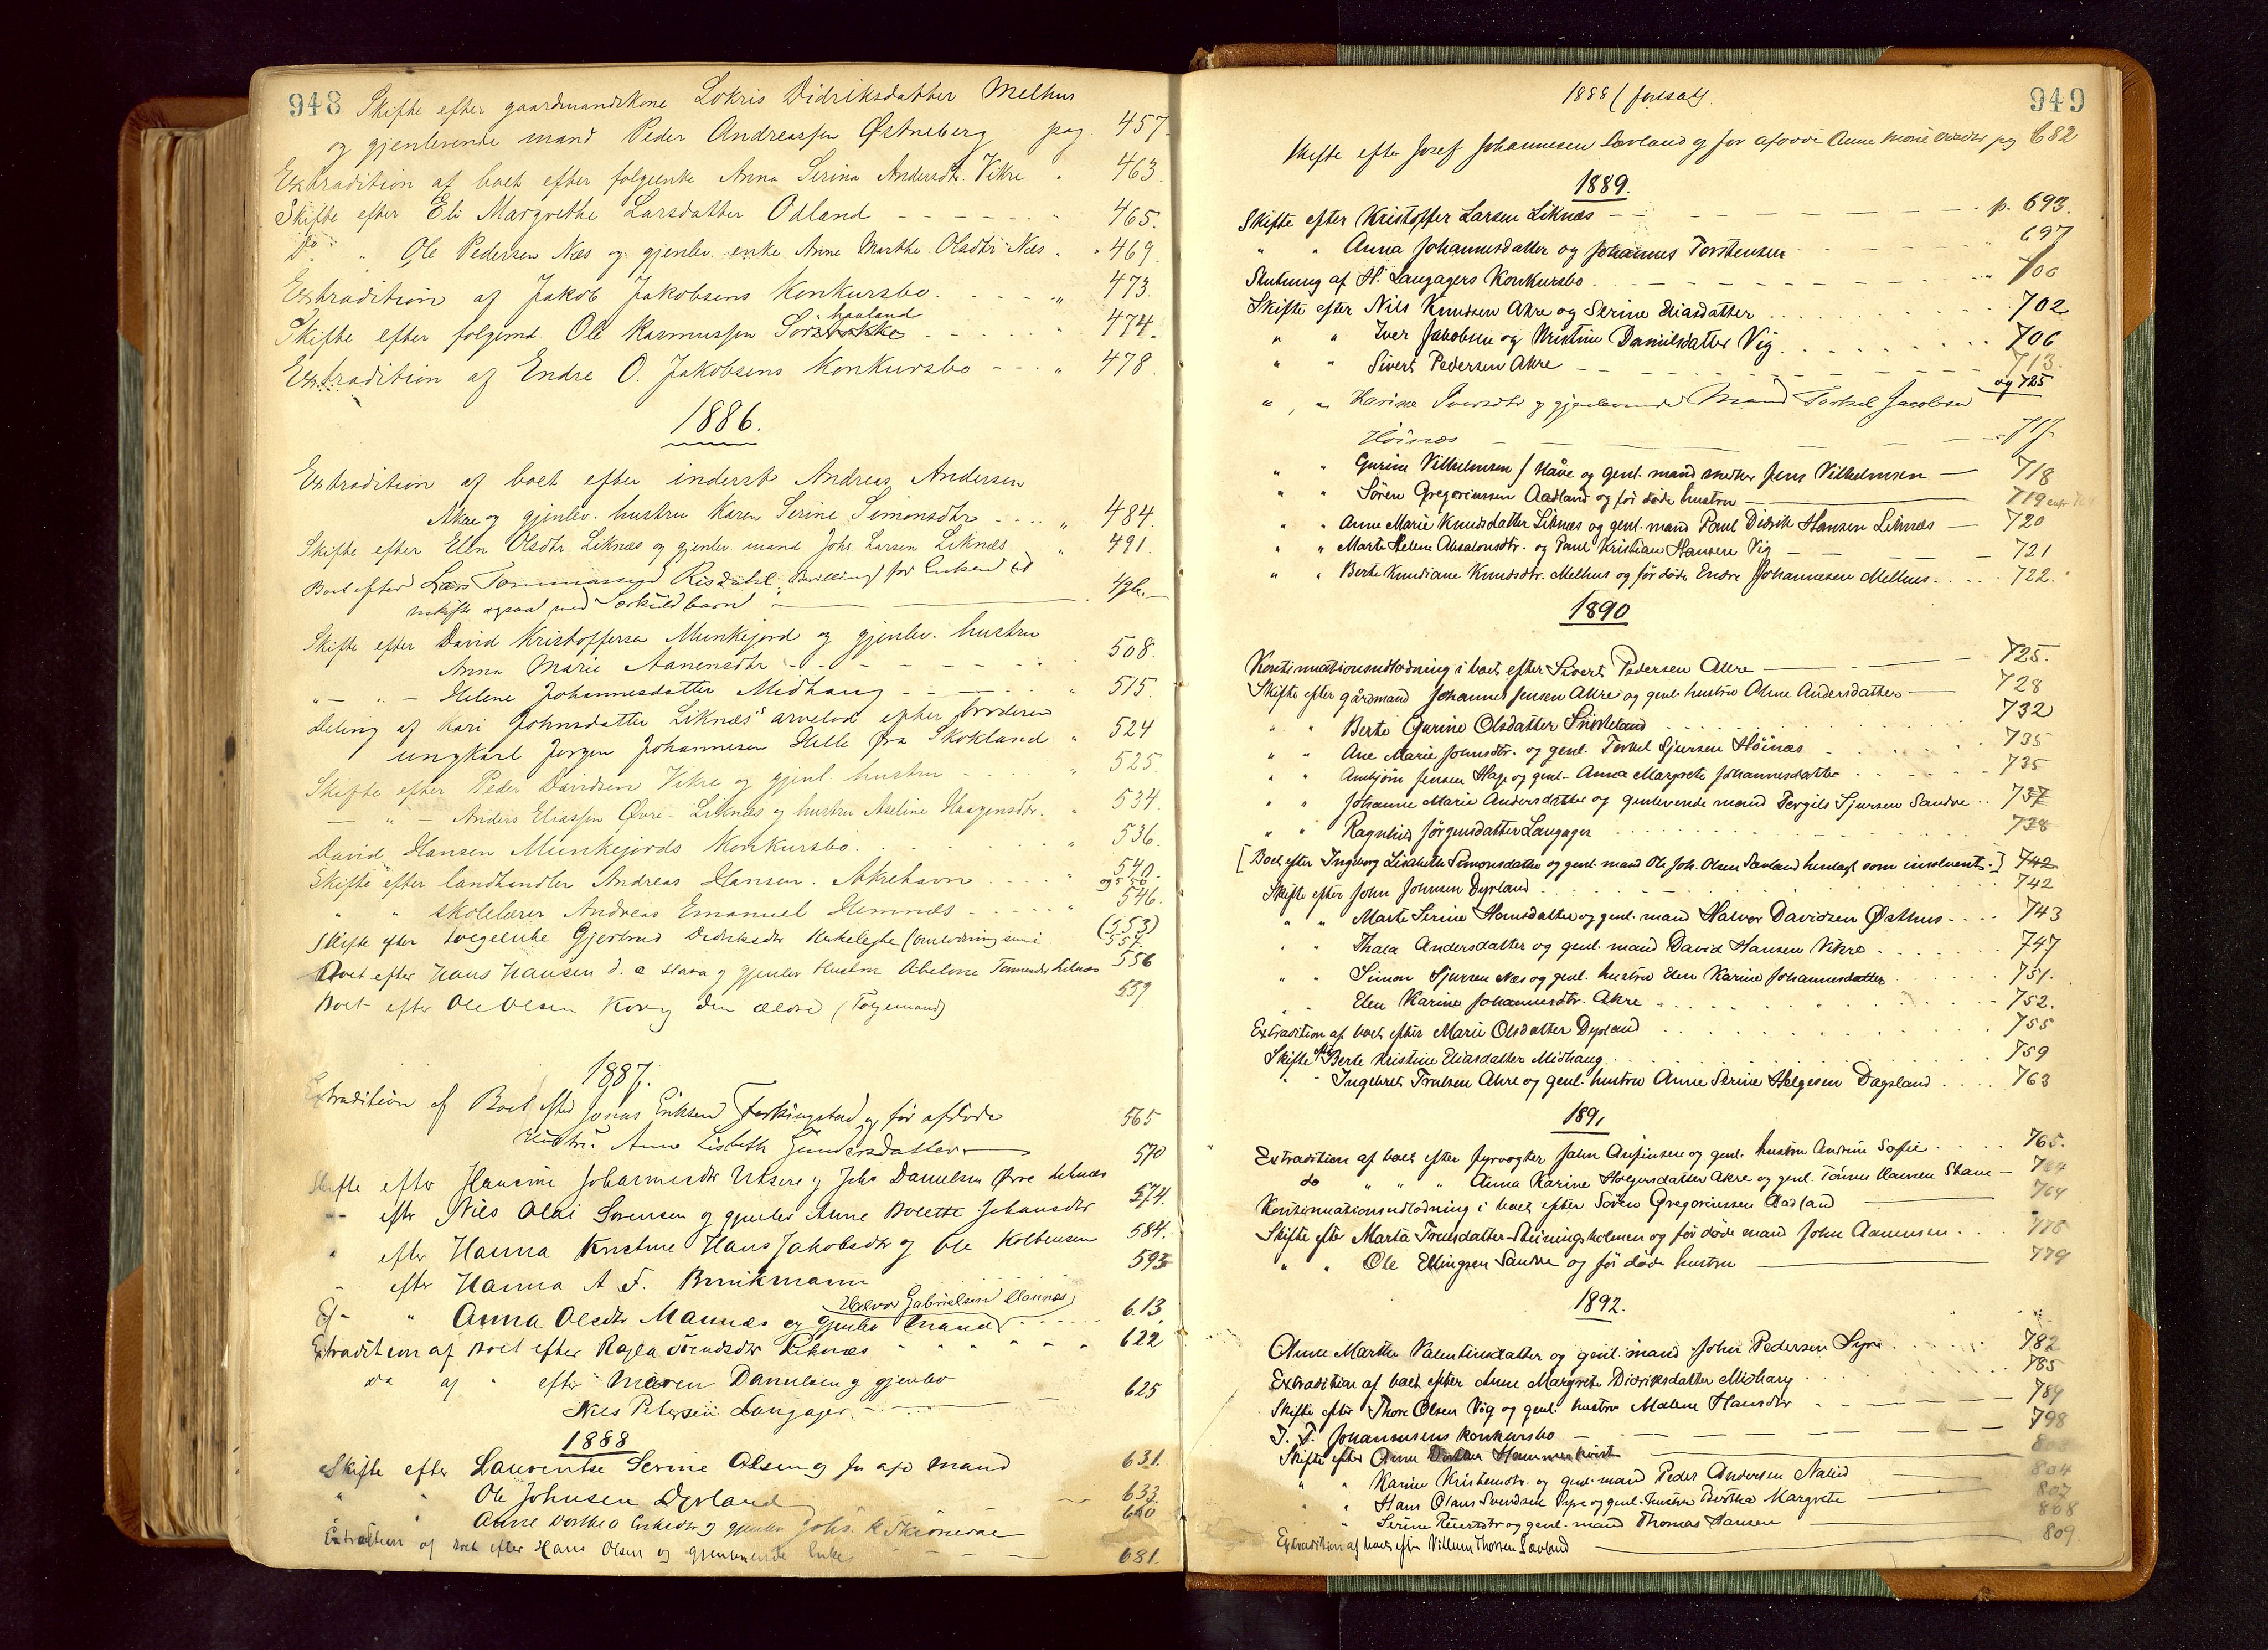 948
Skifte efter gaardmandskone Lokris Didriksdatter Melhus
og gjenlevende mand Peder Andreassen Østneberg pag. 457.
Extradition af boet efter følgeenke Anna Serina Andersdtr. Vikre " 463.
Skifte efter Eli Margrethe Larsdatter Odland - - - - - - " 465.
Do " Ole Pedersen Næs og gjenlev. enke Anne Marthe Olsdtr Næs - " 469.
Extradition af Jakob Jakobsens Konkursbo. - - - - " 473.
haaland
Skifte efter følgemd. Ole Rasmussen Sørstokke - - - - - " 474.
Extradition af Endre O. Jakobsens Konkursbo - - - " 478.
1886.
Extradition af boet efter inderst Andreas Andersen
Akre og gjenlev. hustru Karen Serine Simonsdtr - - - - " 484.
Skifte efter Elen Olsdtr. Liknæs og gjenlev. mand Johs. Larsen Liknæs " 491.
Boet efter Lars Tommassen Risdahl, Bevilling for Enken til
uskifte ogsaa med Særkuldbarn
Skifte efter David Kristoffersen Munkejord og gjenlev. hustru
Anna Marie Aanensdtr - - - - - - - 508.
" - " - Helene Johannesdatter Midhaug - - - - - " 515.
Deling af Kari Johnsdatter Liknæs' arvelod efter broderen
ungkarl Jørgen Johannesen Hille fra Skokland " 524
Skifte efter Peder Davidsen Vikre og gjenl. hustru - - - " 525.
- " - Anders Eliassen Øvre-Liknæs og hustru Aseline Haagensdtr. " 534.
David Hansen Munkejords Konkursbo. - - - - - - " 536.
Skifte efter landhandler Andreas Hansen. Akrehavn - - - - " 540.
og 550
" " skolelærer Andreas Emanuel Hemnes - - - - - " 546.
Skifte efter Gjertrud Didriksdtr (553)
557.
Boet efter Hans Hansen d. e. og gjenlev Hustru Abelone Tønnesdtr Liknæs 556
Boet efter Ole Olsen den ældre (Følgemand) 559
1887.
Extradition af Boet efter Jonas Eriksen Ferkingstad og før afdøde
Hustru Anne Lisbeth Gundersdatter 565
Skifte efter Hansine Johannesdtr Utsire og Johs Danielsen Øvre Liknæs 570
" - efter Nils Olai Sørensen og gjenlev Anne Bolette Johansdtr 574.
" efter Hanna Kristine Hans Jakobsdtr og Ole Kolbensen 584.
" efter Hanna A F. Brinkmann 593
Halvor Gabrielsen Mannæs
" Anna Olsdtr Mannæs og gjenlev Mand - - - - - 613.
Extradition af Boet efter Liknæs " " " " " 622.
do af " efter Maren Danielsen og gjenlev
Nils Petersen Langager. - - - 625
1888
Skifte efter Laurentse Serine Olsen og før afd mand 631.
" " Ole Johnsen Dyrland - 633.
" Anne Dorthea og gjenlev Johs. 640
Extradition af boet efter Hans Olsen og gjenlevende Enke - - - - 681.
949
1888 (fortsatt.
Skifte efter Josef Johannesen Sævland og før afdøde Anne Marie pag 682
1889.
Skifte efter Kristoffer Larsen Liknæs - - - - - - - - - p. 693.
" " Anna Johannesdatter og Johannes Torstensen - - - - - " 697
Slutning af H. Langagers Konkursbo. - - - - - - - - - " 700
Skifte efter Nils Knudsen Akre og Serine Eliasdatter . . . . . . . . 702
" " Iver Jakobsen og Kristine Danielsdatter Vig . . . . . . . . 706
" " Sivert Pedersen Akre - - - - - - - - - - 713.
og 725
" " Karine Iversdtr og gjenlevende Mand Torkel Jacobsen
Høinæs - - - - - - - - - 717
" " Gurine Vilhelmsen f. Håve og genl. mand snedker Jens Vilhelmsen - 718
" " Søren Gregoriussen Aadland og før døde hustru - 719
" " Anne Marie Knudsdatter Liknæs og genl. mand Paul Didrik Hansen Liknæs - 720
" " Marte Helene Absalonsdtr. og Paul Kristian Hansen Vig - - - - - 721
" " Berte Knudiane Knudsdtr. Melhus og før døde Endre Johannesen Melhus . . . . . 722.
1890
Kontinuationsudlodning i boet efter Sivert Pedersen Akre - - - 725.
Skifte efter gårdmand Johannes Jensen Akre og genl. hustru Oline Andersdatter - 728
" " Berte Gurine Olsdatter Snørteland . . . . . . . . . 732
" " Ane Marie Johnsdtr. og genl. Torkel Sjursen Høinæs . . . . . . 735
" " Annbjørn Jensen Hage og genl. Anna Margrete Johannesdatter . . . . . . 735
" " Johanne Marie Andersdatter og genlevende mand Torgils Sjursen Sandve . . 737
" " Ragnhild Jørgensdatter Langager . . . . . . . . . 738
[Boet efter Ingeborg Lisabeth Simonsdatter og genl. mand Ole Joh. Olsen Sævland henlagt som insolvent.] 742
Skifte efter John Johnsen Dyrland . . . . . . . . . . 742
" " Marte Serine Hansdatter og genl. mand Halvor Davidsen Østhus . . . . 743
" " Thala Andersdatter og genl. mand David Hansen Vikre . . . . . . 747
" " Simon Sjursen Næs og genl. hustru Elen Karine Johannesdatter . . . . 751.
" " Elen Karine Johannesdtr. Akre . . . . . . . . . 752.
Extradition af boet efter Marie Olsdatter Dyrland . . . . . . . . 755
Skifte eft. Berte Kristine Eliasdatter Midhaug . . . . . . . . . . 759
" " Ingebret Trulsen Akre og genl. hustru Anne Serine Helgesen Dagsland . . . . 763
1891
Extradition af boet efter fyrvogter John Arnfinsen og genl. hustru Andrine Sofie . . . . . 765.
do " " " Anna Karine Holgersdatter Akre og genl. Tønnes Hansen Stave - 764
Kontinuationsudlodning i boet efter Søren Gregoriussen Aadland - 764
Skifte efter Marta Trulsdatter Steiningsholmen og før døde mand John Aanensen . . . 778
" " Ole Ellingsen Sandve og før døde hustru - 779
1892.
Anne Marthe Valentinsdatter og genl. mand John Pedersen Syre . . . . . . 782
Extradition af boet efter Anne Margrete Didriksdatter Midhaug . . . . . . 785
Skifte efter Thore Olsen Vig og genl. hustru Malene Hansdtr - - - - - 789
J. T. Johannesens konkursbo - - - - - - - - - 798
Skifte efter Anne Dorthea Hammerkvist
" " Karine Kristensdtr. og genl. mand Peder Andersen Nalid - 804
" " Hans Olaus Svendsen Syre og genl. hustru Bertha Margrete - 807
" " Serine og genl. mand Thomas Hansen - 808
Extradition af boet efter Villum Thorsen Sævland - 809.